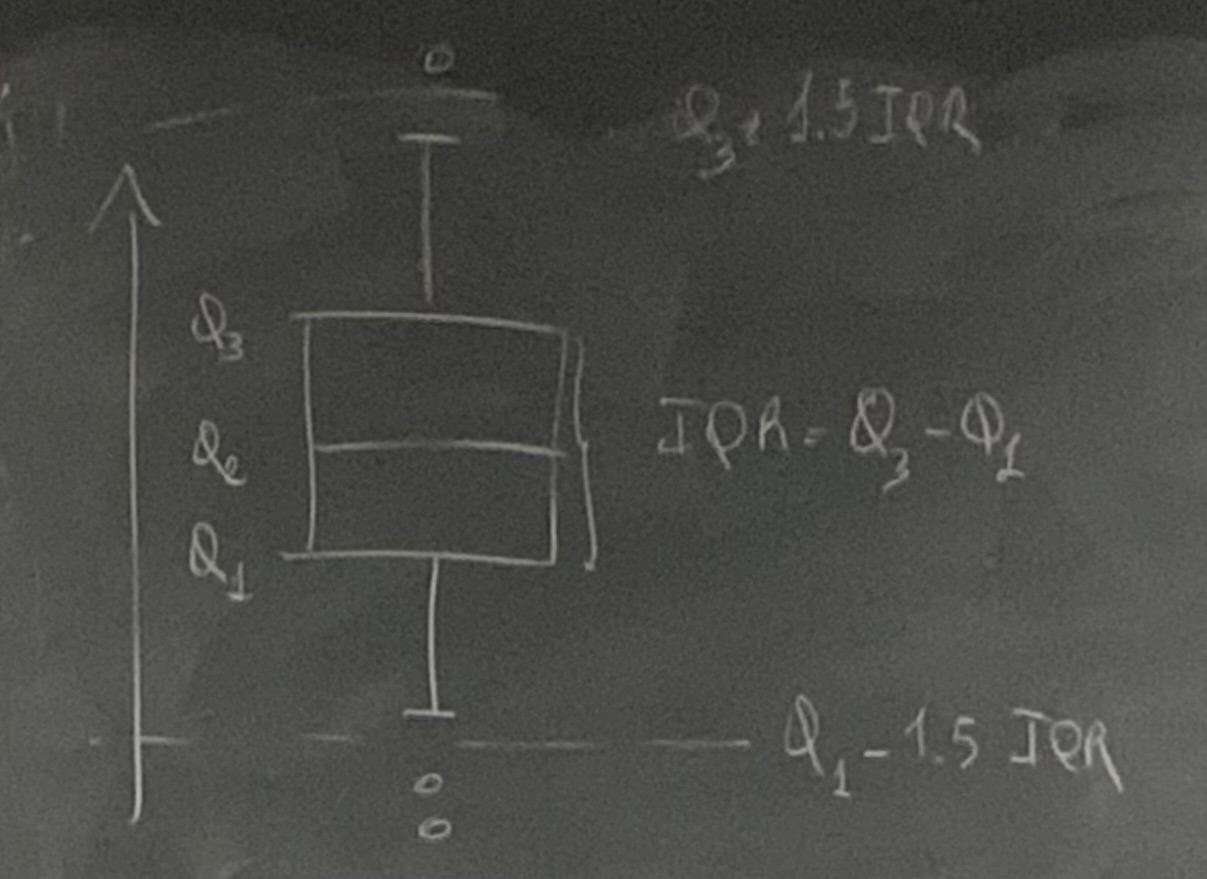 Q3 + 1.5 IQR
Q3
Q2
IQR = Q3 - Q1
Q1
Q1 - 1.5 IQR